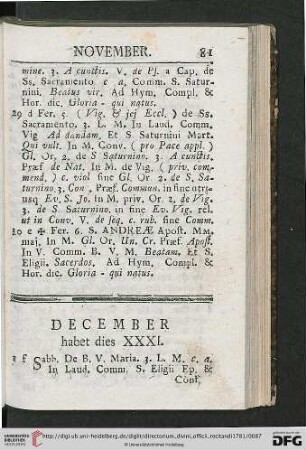 NOVEMBER. 81
mine. 3. A cunctis. V. de Pſ. a Cap. de
Ss. Sacramento c a. Comm. S. Satur-
nini. Beatus vir. Ad Hym. Compl. &
Hor. dic. Gloria - qui natus.
29 d Fer. 5. ( Vig. & jej Eccl. ) de Ss.
Sacramento. 3. L. M. In Laud. Comm.
Vig Ad dandam. Et S Saturnini Mart.
Qui vult. In M. Conv. ( pro Pace appl. )
Gl. Or. 2. de S Saturnino. 3. A cunctis.
Præf de Nat. In M. de Vig. ( priv. com-
mend, ) c. viol ſine Gl. Or. 2. de S. Sa-
turnino 3. Con , Præf. Commun. in fine utri-
usq Ev. S. Jo. in M. priv. Or. 2. de Vig.
3. de S. Saturnino. in fine Ev. Vig. rel.
ut in Conv. V. de ſeq. c. rub. ſine Comm.
30 e ✠ Fer. 6. S. ANDREÆ Apoſt. MM.
maj. In M. Gl Or. Un. Cr. Præf. Apoſt.
In V. Comm. B. V. M. Beatam. Et S.
Eligii. Sacerdos. Ad Hym. Compl. &
Hor. dic. Gloria - qui natus.
DECEMBER
habet dies XXXI.
1 f Sabb. De B. V. Maria. 3. L. M. c. a.
In Laud. Comm. S. Eligii Ep. &
Conf,
UNIVERSITÄTS-
BIBLIOTHEK
HEIDELBERG
http://digi.ub.uni-heidelberg.de/diglit/directorium_divini_officii_recitandi1781/0087
© Universitätsbibliothek Heidelberg
gefördert durch die
DFG